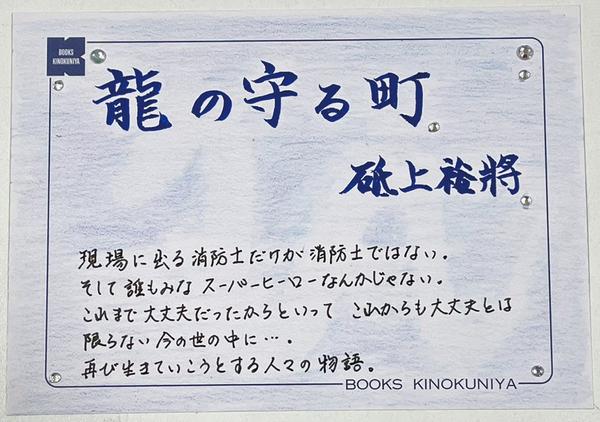 BOOKS
KINOKUNIYA
龍の守る町
砥上裕將
現場に出る消防士だけが消防士ではない。
そして誰もみなスーパーヒーローなんかじゃない。
これまで大丈夫だったからといって これからも大丈夫とは
限らない今の世の中に…。
再び生きていこうとする人々の物語。
BOOKS KINOKUNIYA